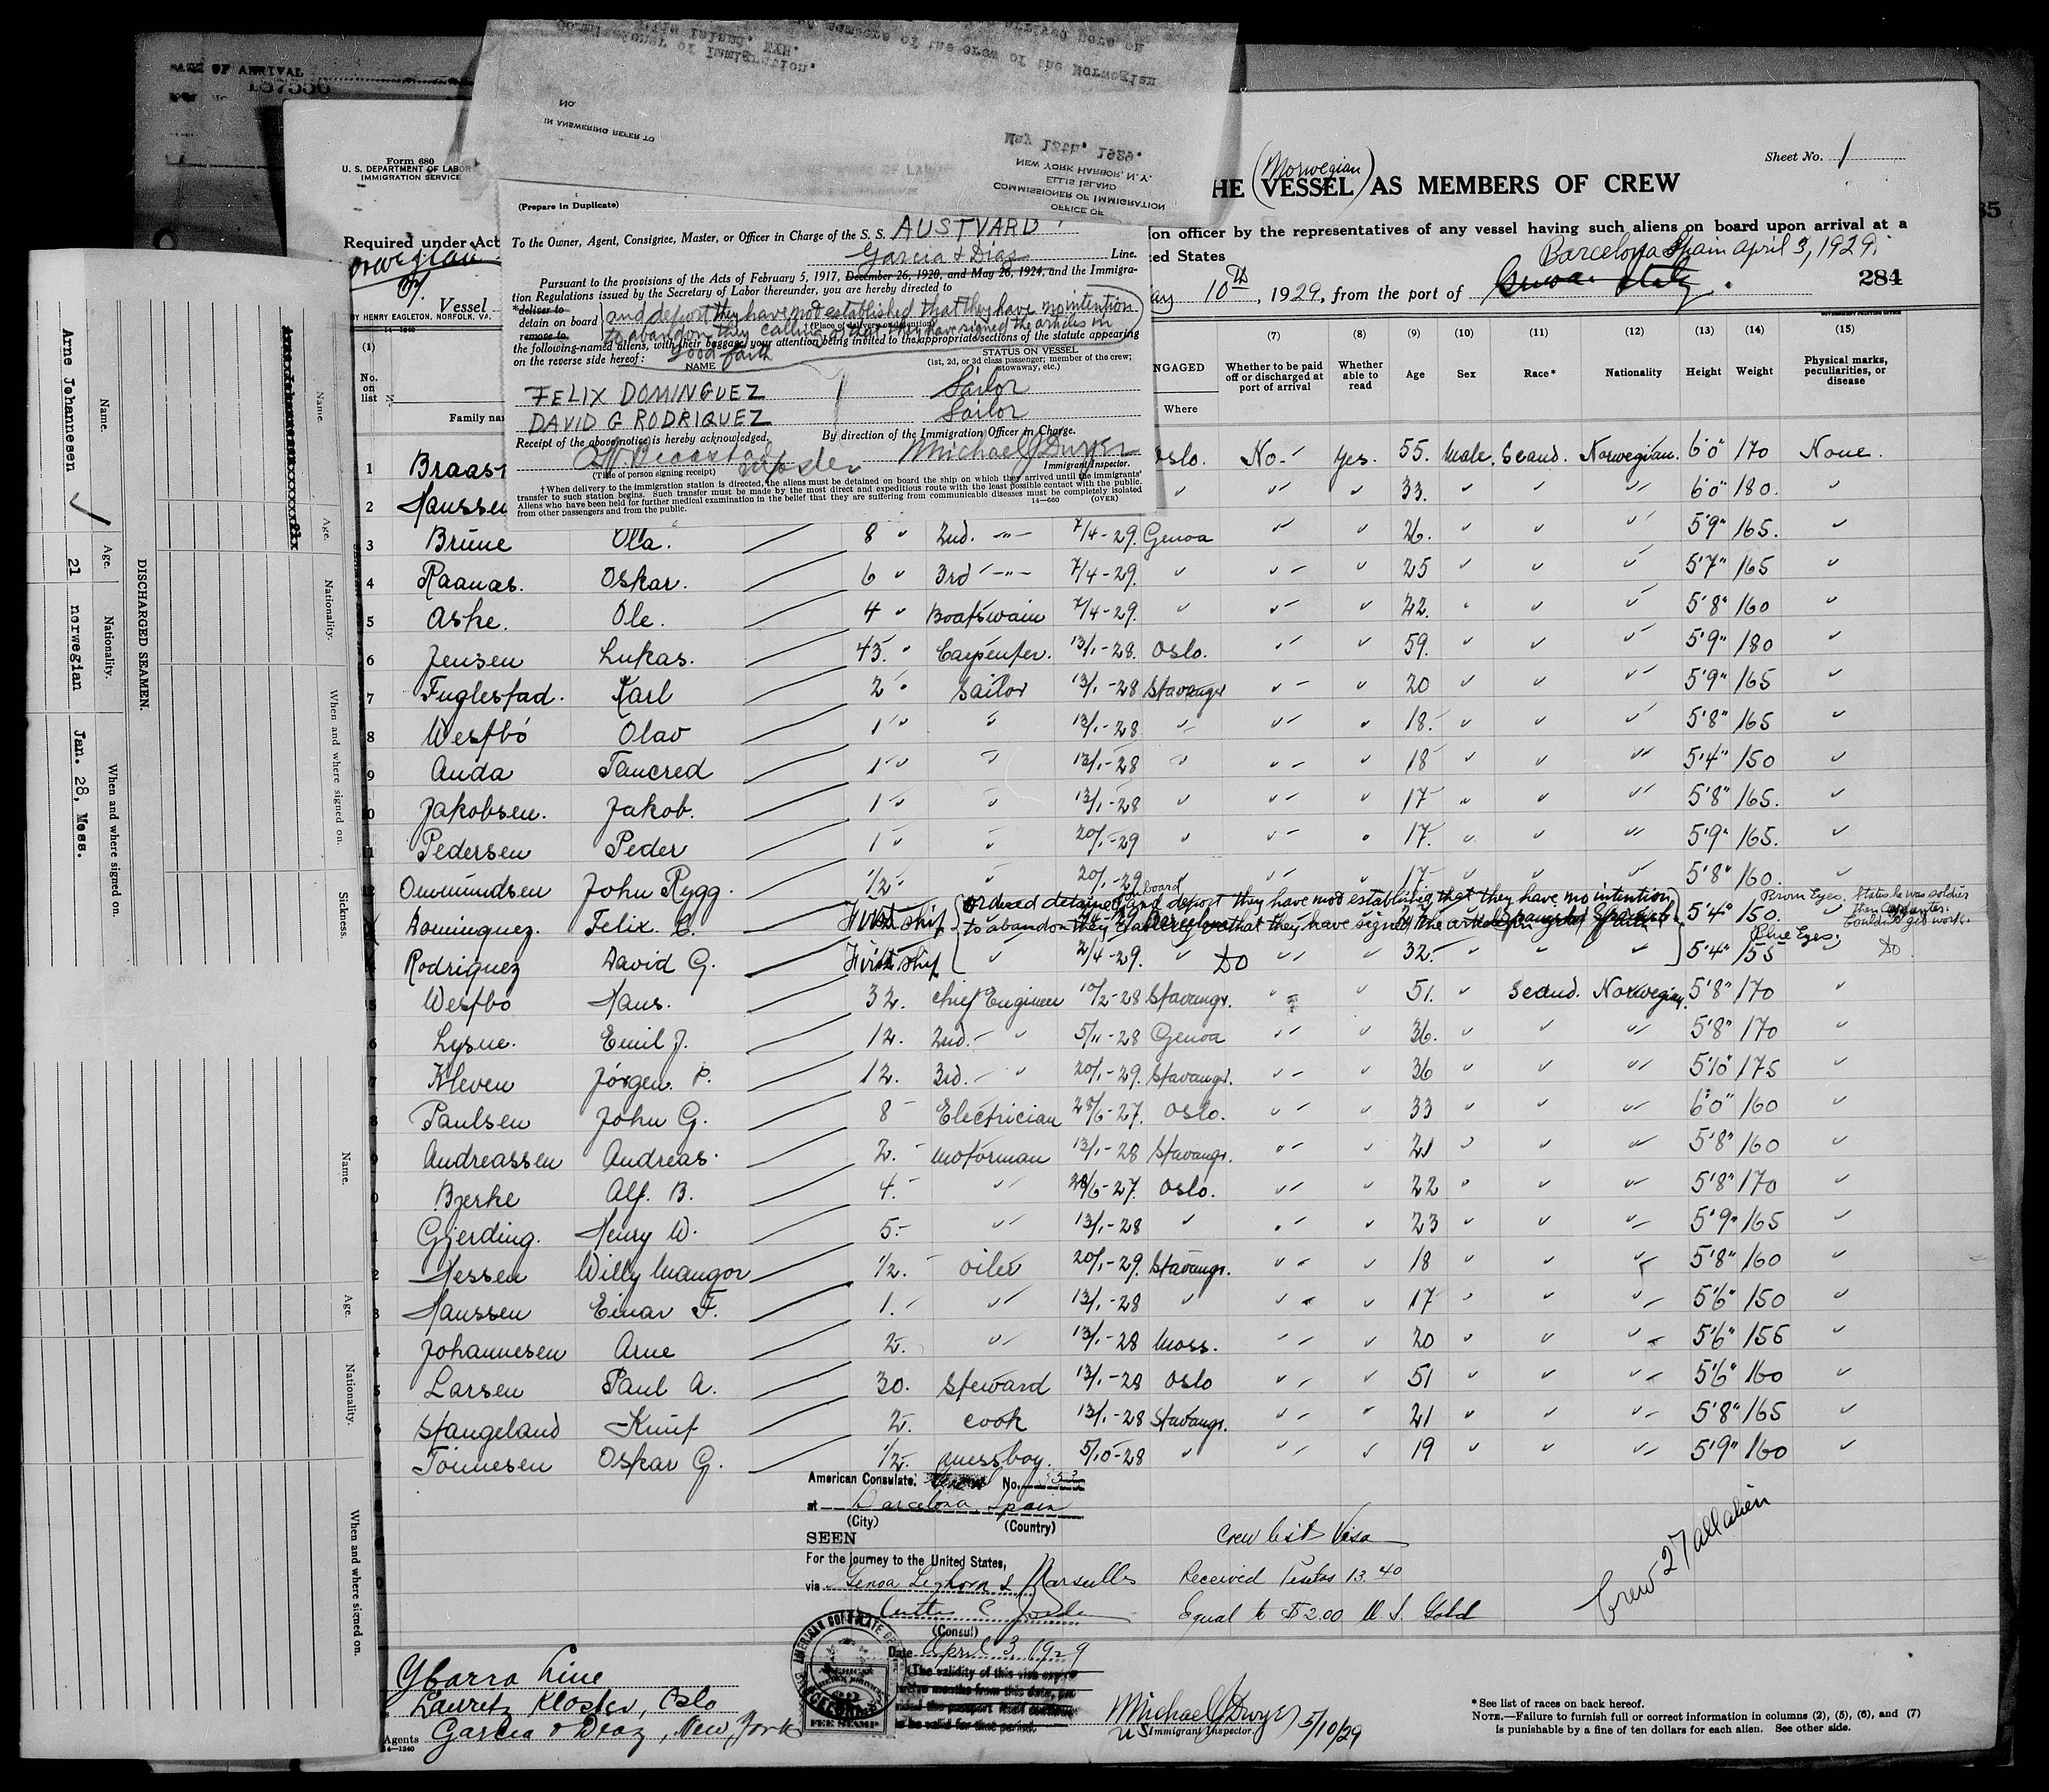 DATE OF ARRIVAL
137556
Form 680
U. S. DEPARTMENT OF LABOR
IMMIGRATION SERVICE
Required under Act
Vessel
BY HENRY EAGLETON, NORFOLK, VA.
14—1240
Commissioner of Immigration.
Ellis Island, NYH.
members of the crew of the Norwegian
No.
IN ANSWERING REFER TO
May 13th, 1929.
NEW YORK HARBOR, N. Y.
ELLIS ISLAND
COMMISSIONER OF IMMIGRATION
OFFICE OF
(Prepare in Duplicate)
To the Owner, Agent, Consignee, Master, or Officer in Charge of the S. S. AUSTVARD
Garcia & Dias Line.
Pursuant to the provisions of the Acts of February 5, 1917, December 26, 1920, and May 26, 1924, and the Immigra-
tion Regulations issued by the Secretary of Labor thereunder, you are hereby directed to
*deliver to
detain on board
remove to
and deport they have not established that they have no intention
to abandon they calling or that they have signed the articles in
good faith
(Place of delivery or detention)
the following-named aliens, with their baggage, your attention being invited to the appropriate sections of the statute appearing
on the reverse side hereof:
NAME
STATUS ON VESSEL
(1st, 2d, or 3d class passenger; member of the crew; stowaway, etc.)
FELIX DOMINGUEZ Sailor
DAVID G RODRIQUEZ Sailor
Receipt of the above notice is hereby acknowledged. By direction of the Immigration Officer in Charge.
Braastad Master Michael J Dwyer
(Title of person signing receipt) Immigrant Inspector.
†When delivery to the immigration station is directed, the aliens must be detained on board the ship on which they arrived until the immigrants'
transfer to such station begins. Such transfer must be made by the most direct and expeditious route with the least possible contact with the public.
Aliens who have been held for further medical examination in the belief that they are suffering from communicable diseases must be completely isolated
from other passengers and from the public. 14—660 (OVER)
Sheet No. 1
HE (Norwegian) VESSEL AS MEMBERS OF CREW
ion officer by the representatives of any vessel having such aliens on board upon arrival at a
ted States
Barcelona Spain april 3, 1929.
ay 10th, 1929, from the port of Genoa Italy. 284
(1) (7) (8) (9) (10) (11) (12) (13) (14) (15)
No. on list
Family na
NGAGED
Where
Whether to be paid off or discharged at port of arrival
Whether able to read
Age
Sex
Race*
Nationality
Height
Weight
Physical marks, peculiarities, or disease
1 Braast Oslo. No- Yes. 55. Male. Scand. Norwegian. 6'0" 170 None.
2 Hanssen " " " 33. " " " 6'0" 180. "
3 Brune Ola. 8 " 2nd. -"- 7/4-29. Genoa " " 26. " " " 5'9" 165. "
4 Raanas. Oskar. 6 " 3rd -"- 7/4-29. " " " 25 " " " 5'7" 165 "
5 Aske. Ole. 4 " Boatswain 7/4-29. " " " 22. " " " 5'8" 160 "
6 Jensen Lukas. 45. " Carpenter. 13/1-28. Oslo. " " 59. " " " 5'9" 180 "
7 Fuglestad. Karl 2 " Sailor 13/1-28 Stavanger " " 20 " " " 5'9" 165 "
8 Westbö Olav 1 " " 13/1-28 " " " 18. " " " 5'8" 165 "
9 Anda Tancred 1 " " 13/1-28 " " " 18 " " " 5'4" 150 "
10 Jakobsen. Jakob. 1 " " 13/1-28 " " " 17 " " " 5'8" 165. "
11 Pedersen Peder 1 " " 20/1-29 " " " 17. " " " 5'9" 165. "
12 Ommundsen John Rygg. 1/2 " 20/1-29 " " " 17. " " " 5'8" 160. "
ordered detained on board and deport they have not establishd that they have no intention
Dominguez. Felix C. First ship to abandon they calling or that they have signed the articles in good faith 5'4" 150. "
Brown Eyes. States he was soldier
Couldn't get work.
Blue Eyes.
4 Rodriguez David G. First ship " 2/4-29. " Do " " 32. " " " 5'4" 155 Do.
5 Westbö Hans. 32. Chief Engineer 10/2-28 Stavangr. " " 51. " Scand. Norwegian. 5'8" 170 "
6 Lysne. Emil J. 12. 2nd.- " 5/11-28 Genoa " " 36. " " " 5'8" 170 "
7 Kleven Jörgen. P. 12. 3rd.- " 20/1-29. Stavangr. " " 36 " " " 5'10" 175 "
8 Paulsen John G. 8 - Electrician 28/6-27. Oslo. " " 33 " " " 6'0" 160 "
9 Andreassen Andreas. 2.- Motorman 13/1-28 Stavangr. " " 21 " " " 5'8" 160 "
0 Bjerke Alf. B. 4.- " 28/6-27. Oslo. " " 22 " " " 5'8" 170 "
1 Gjerding. Henry W. 5.- " 13/1-28 " " " 23 " " " 5'9" 165 "
2 Hessen Willy Mangor 1/2.- Oiler 20/1-29. Stavangr. " " 18 " " " 5'8" 160 "
3 Hanssen Einar F. 1.- " 13/1-28 " " " 17 " " " 5'6" 150 "
4 Johannesen Arne 2. " 13/1-28 Moss. " " 20 " " " 5'6" 156 "
5 Larsen Paul A. 30. Steward 13/1-28 Oslo " " 51 " " " 5'6" 160 "
6 Stangeland Knut 2. Cook 13/1-28 Stavangr. " " 21 " " " 5'8" 165 "
7 Tönnesen Oskar G. 1/2. Messboy. 5/10-28 " " " 19 " " " 5'9" 160 "
American Consulate. No. 353
at Barcelona, Spain
(City) (Country)
SEEN
For the journey to the United States,
via Genoa Leghorn & Marseilles
(Consul)
Date April 3, 1929
(The validity of this visa expires
twelve months from this date, pro-
vided the passport itself continues
to be valid for that period.
AMERICAN CONSULATE
FEE STAMP
Crew list Visa
Received Pesetas 13.40
Equal to $2.00 U S. Gold
Crew 27 all alien
Ybarra Line
Lauritz Kloster, Oslo
Agents Garcia & Diaz, New York
14—1240
Michael J Dwyer 5/10/29
US Immigrant Inspector.
*See list of races on back hereof.
NOTE.—Failure to furnish full or correct information in columns (2), (5), (6), and (7)
is punishable by a fine of ten dollars for each alien. See other side.
DISCHARGED SEAMEN.
Name. Age. Nationality. When and where signed on.
Arne Johannesen 21 norwegian Jan. 28, Moss.
Name. Age. Nationality. When and where signed on. Sickness.
Name. Age. Nationality. When and where signed on.